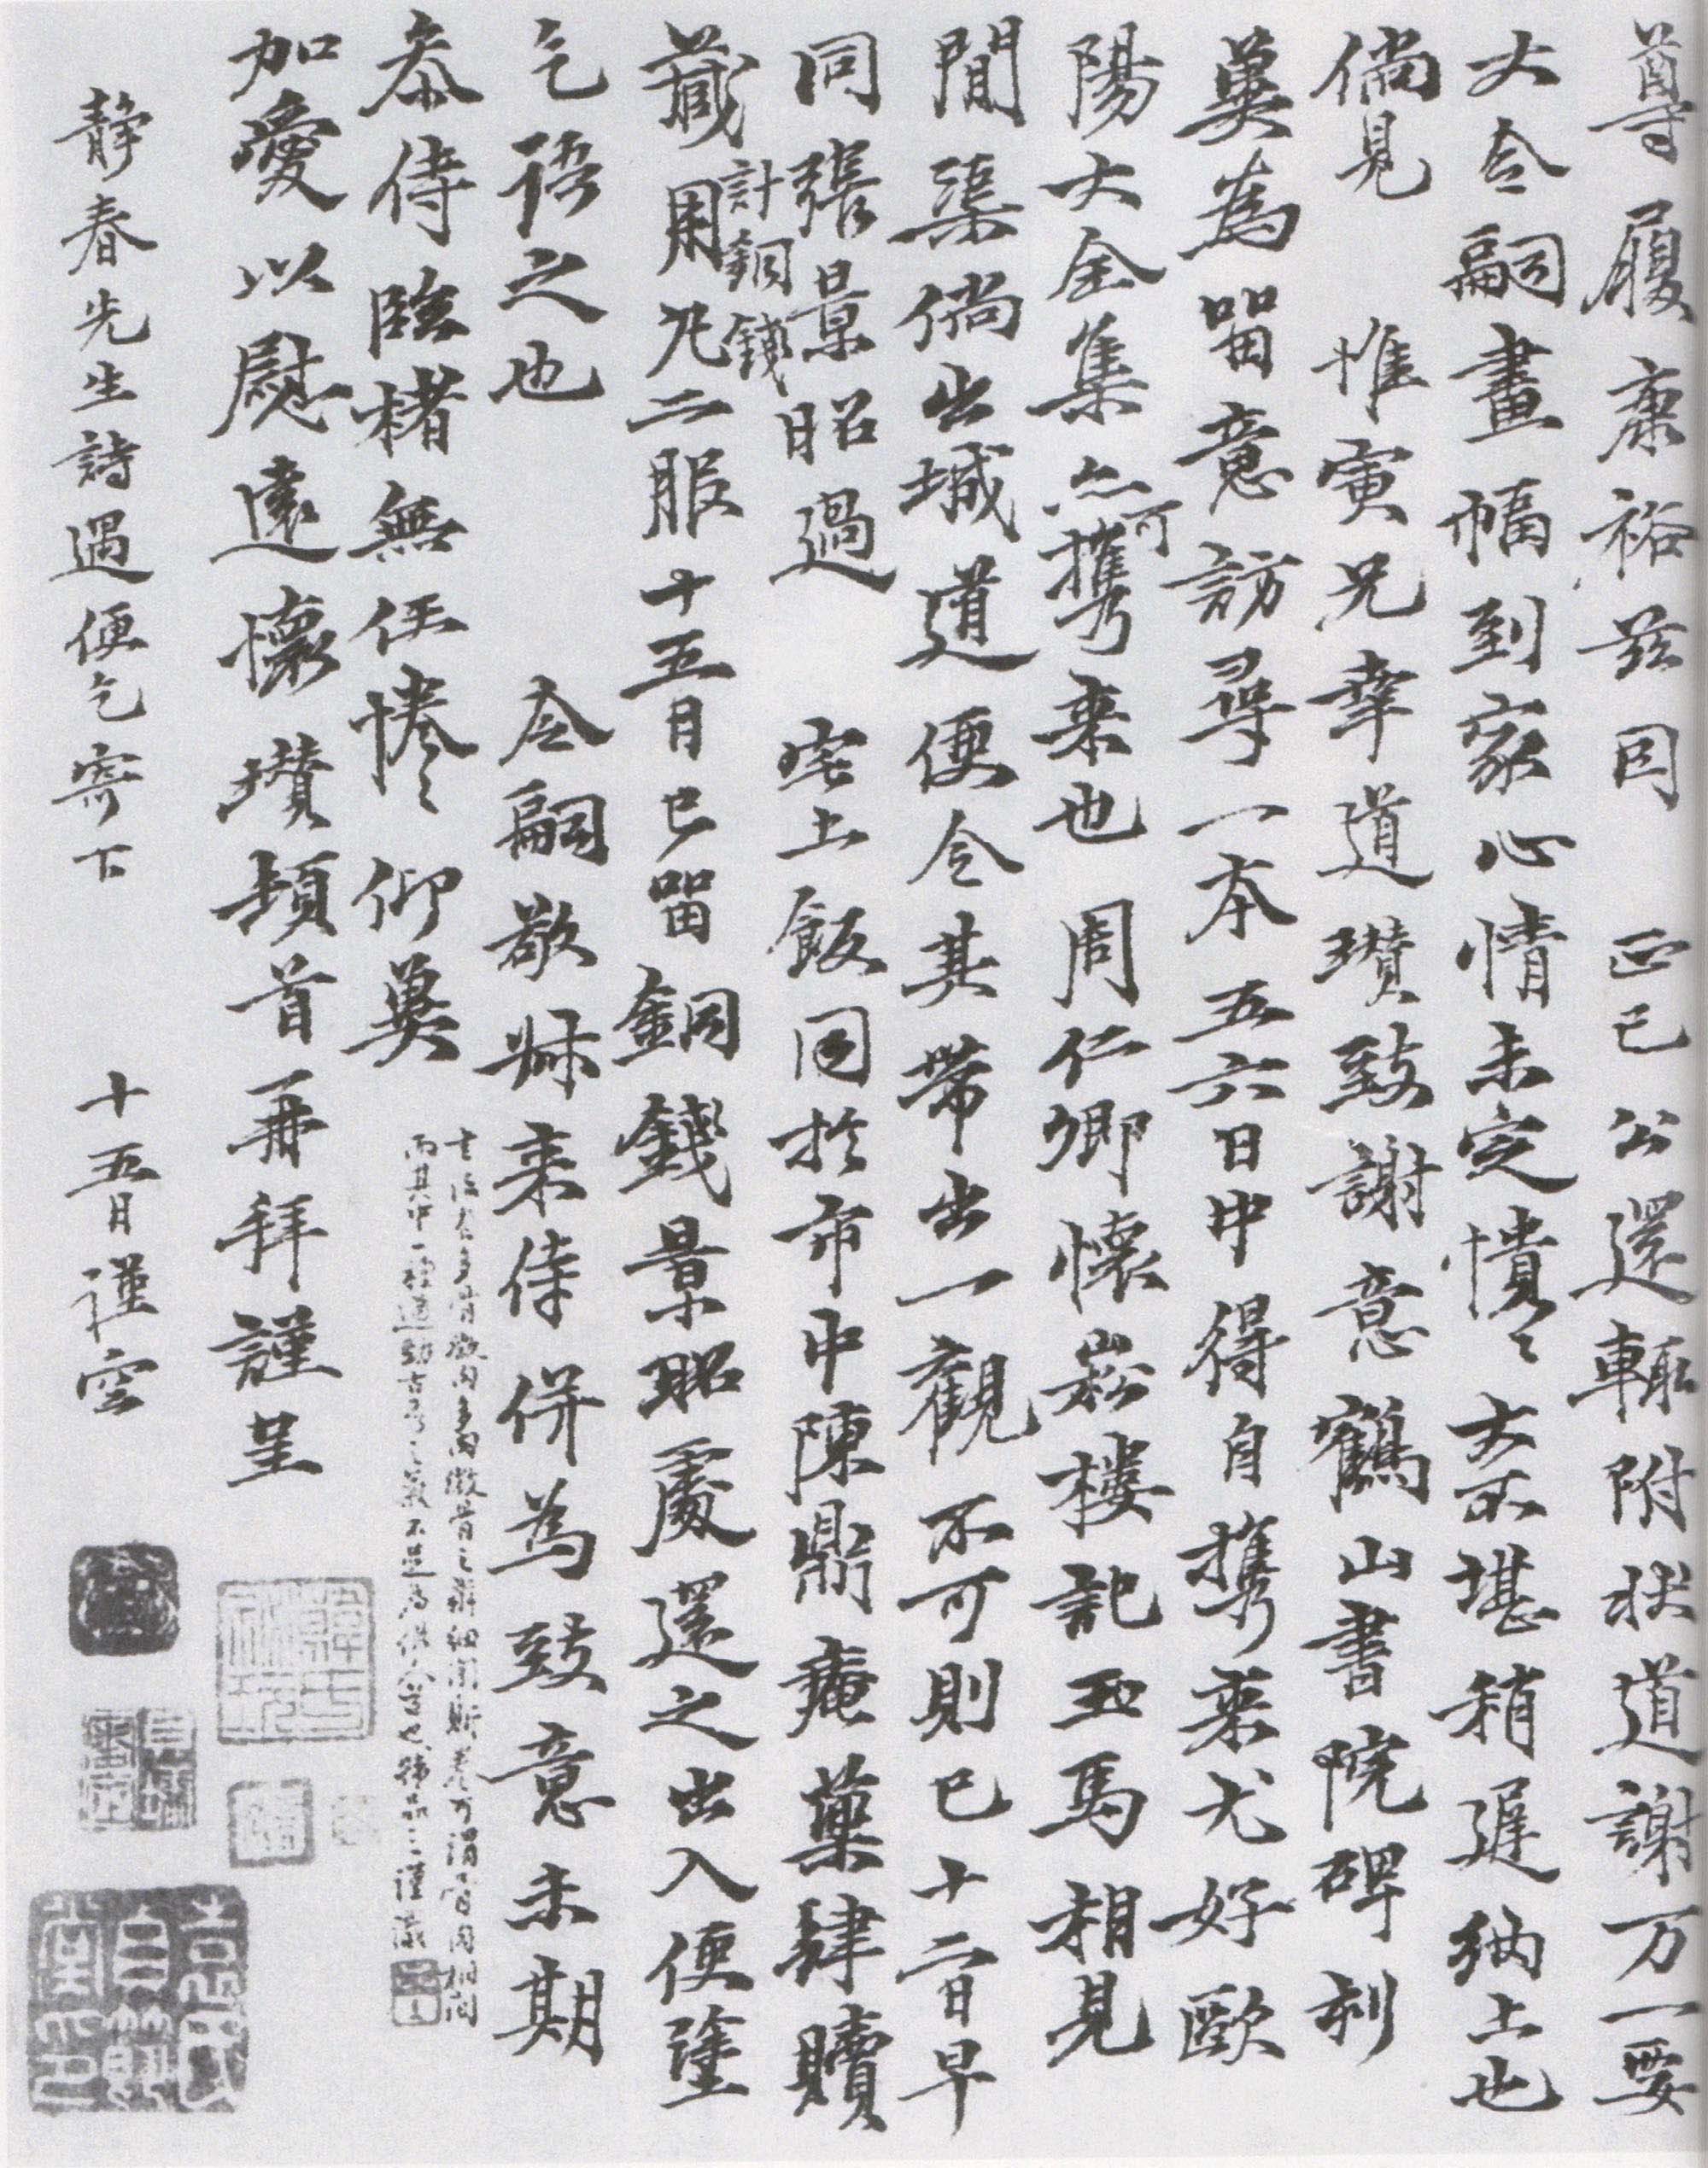 尊履康裕茲因　正己公還輒附狀道謝万一要
大令嗣畫幅到家心情未定憒〻夯不堪稍遲納上也
倘見　惟寅兄幸道瓚致謝意鶴山書院碑刻
冀為留意訪尋一本五六日中得自攜來尤好歐
陽大全集亦可攜來也周仁卿懷崧樓記五馬相見
間渠倘出城道便令其帶出一觀不可則已十二日早
同張景昭過　宅上飯因於市中陳鼎菴藥肆贖
藏用丸二服十五日已留銅錢景昭處還之出入便望
計銅錢
乞語之也　令嗣敬姊來侍併為致意未期
參侍臨楮無任惓〻仰冀
加愛以慰遠懷瓚頓首再拜謹呈
靜春先生詩遇便乞寄下　十五日謹空